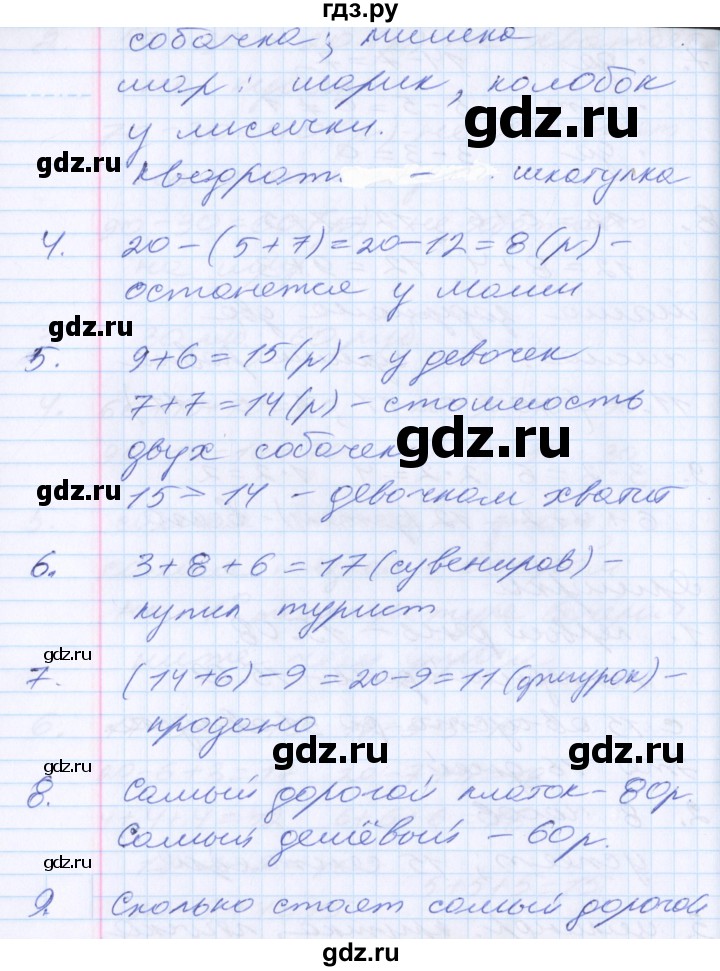 гдз.ру
собачка; мишка
шар: шарик, колобок
у лисички.
квадрат. - шкатулка
4. 20-(5+7)=20-12=8(р)-
останется у Маши
5. 9+6=15(р)- у девочек
7+7=14(р)-стоимость
двух собачек
15 > 14 - девочкам хватит
6. 3+8+6=17(сувениров)-
купил турист
7. (14+6)-9=20-9=11(фигурок)-
продано
8. Самый дорогой платок-80р.
Самый дешёвый - 60р.
9. Сколько стоят самый дорогой
gdz.ru
gdz.ru
gdz.ru
gdz.ru
gdz.ru
gdz.ru
gdz.ru
gdz.ru
gdz.ru
gdz.ru
gdz.ru
gdz.ru
gdz.ru